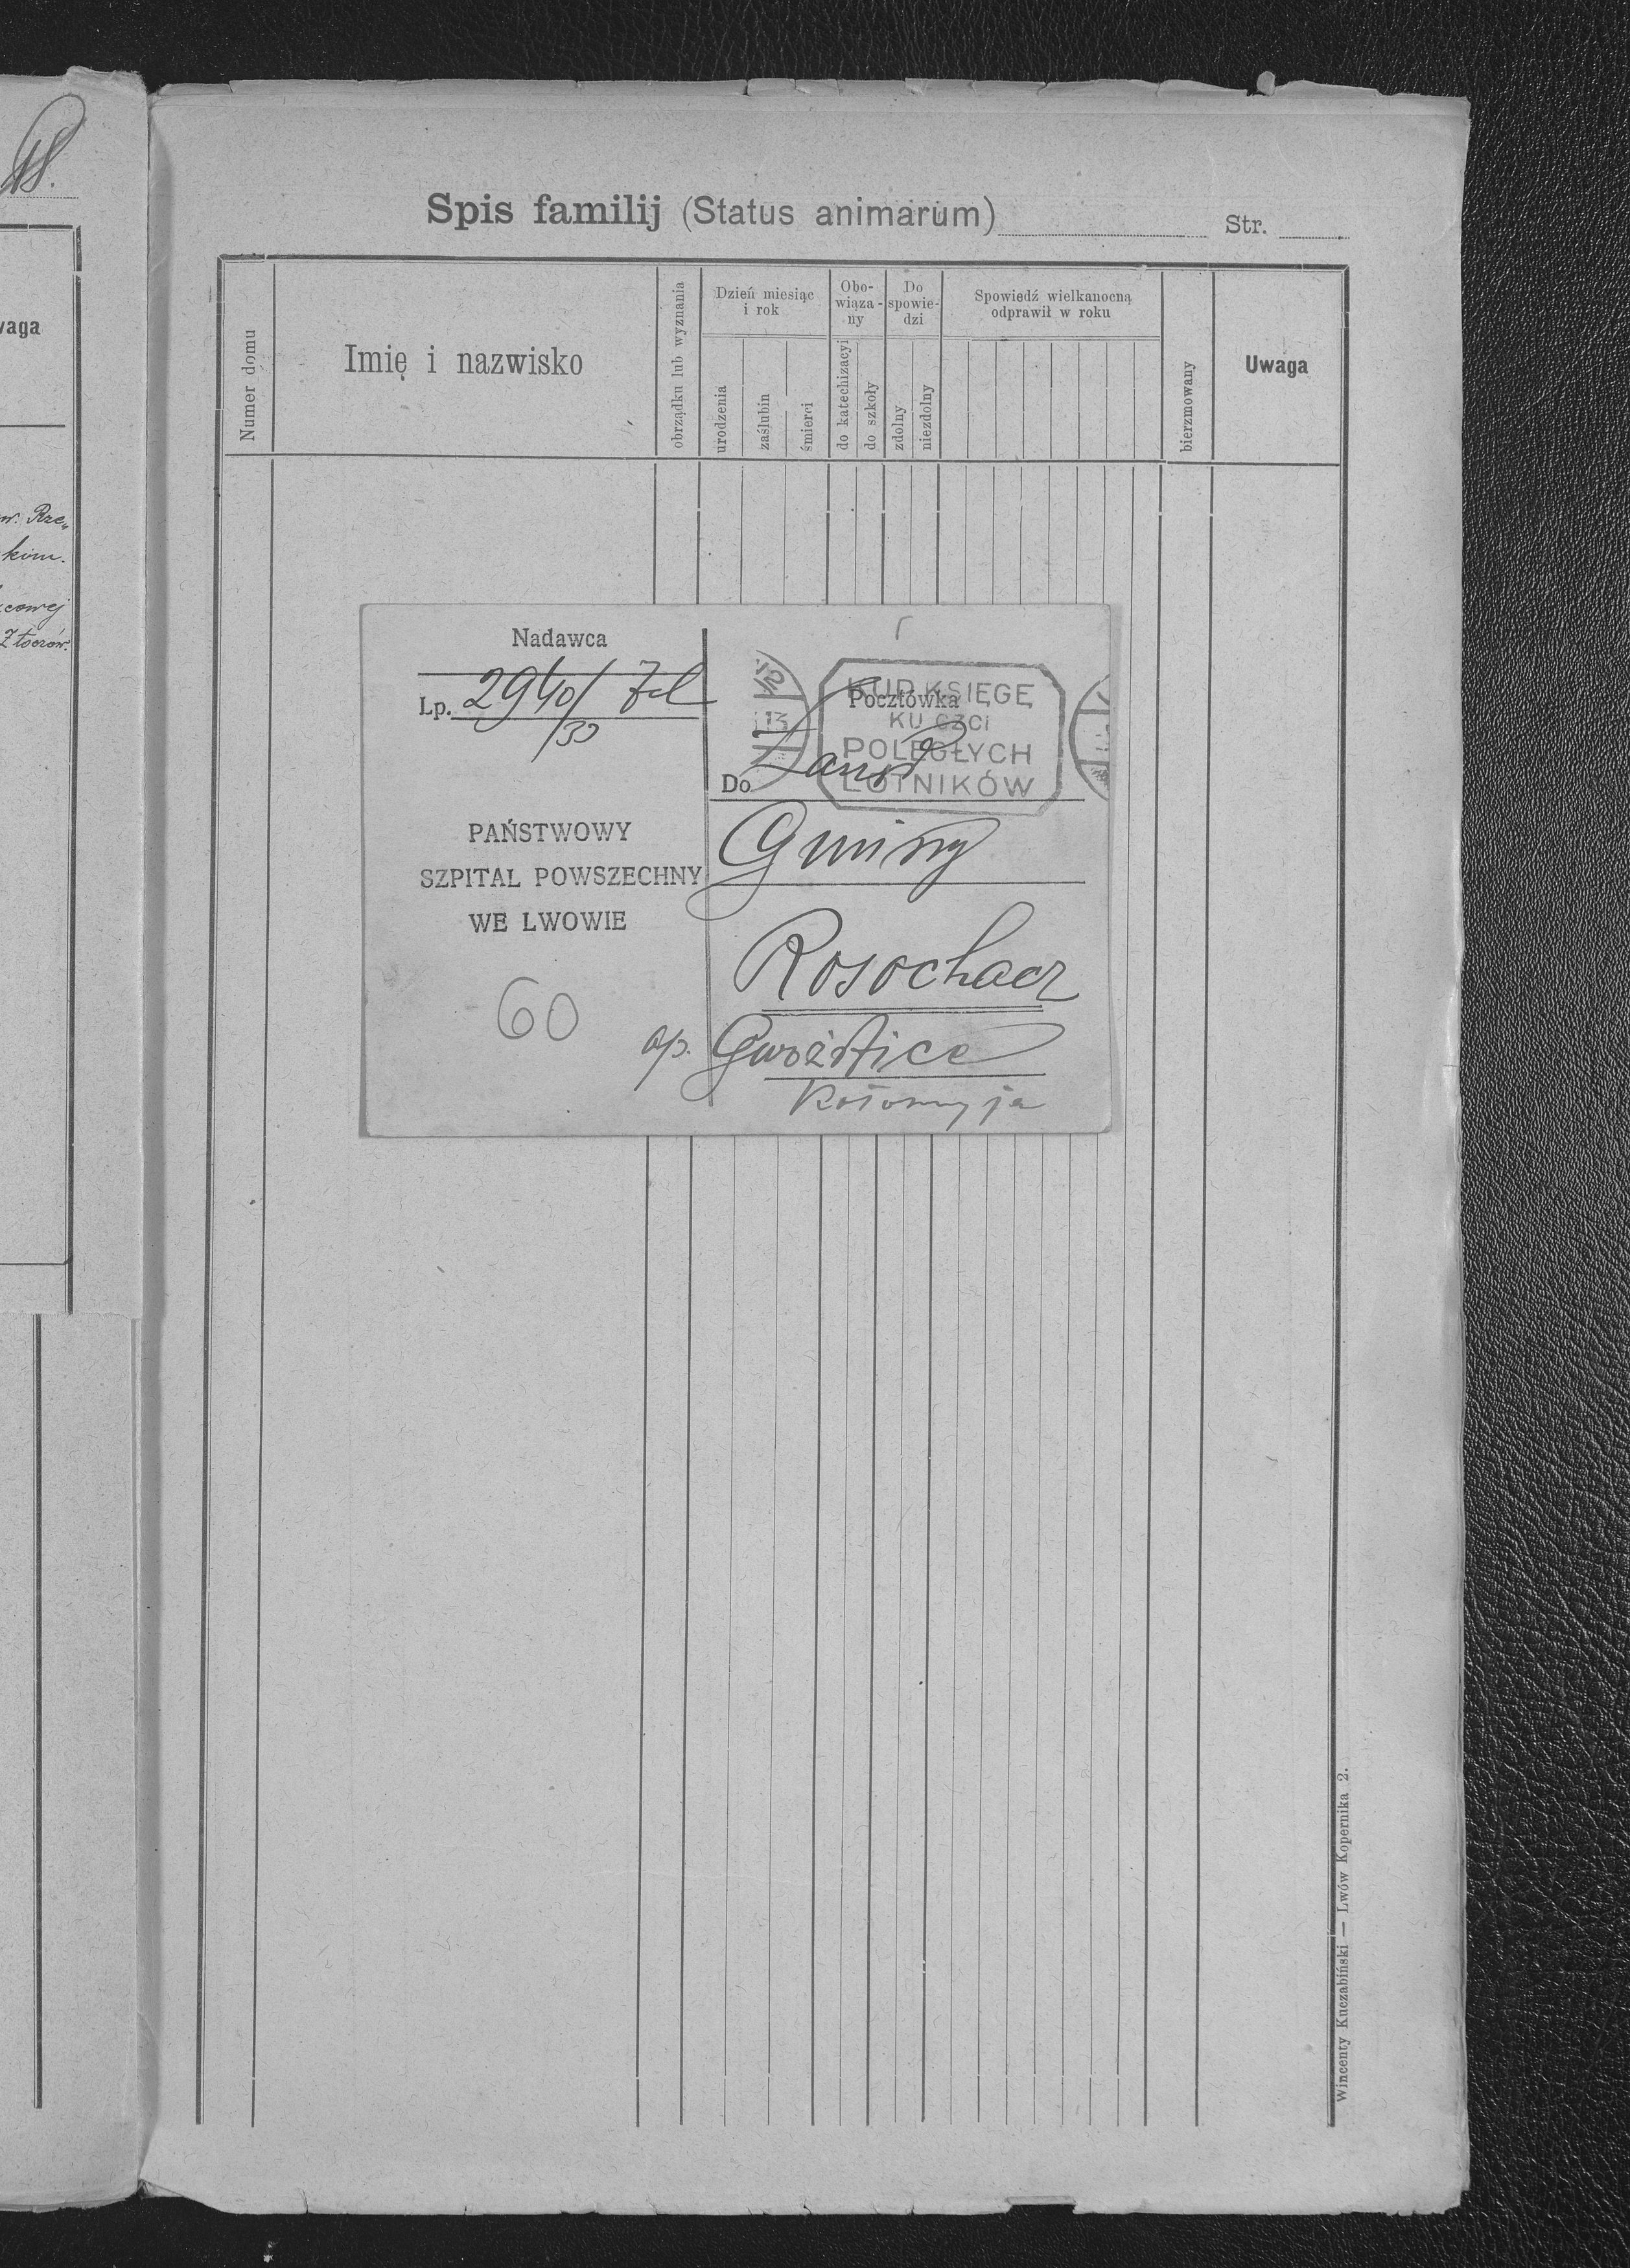 waga
w. Rze„
kim.
cowej
Złoczów.
Spis familij (Status animarum)
Str.
Numer domu
Imię i nazwisko
obrządku lub wyznania
Dzień miesiąc
i rok
urodzenia
zaślubin
śmierci
Obo-
wiąza-
ny
do katechizacyi
do szkoły
Do
spowie-
dzi
zdolny
niezdolny
Spowiedź wielkanocną
odprawił w roku
bierzmowany
Uwaga
Nadawca
Lp. 2940/
/30
PAŃSTWOWY
SZPITAL POWSZECHNY
WE LWOWIE
60
Pocztówka
KUP KSIĘGĘ
KU CZCI
POLEGŁYCH
LOTNIKÓW
12
13
Do
Gminy
Rosochacz
op. Gwoździce
Kołomyja
Wincenty Kuczabiński — Lwów Kopernika 2.